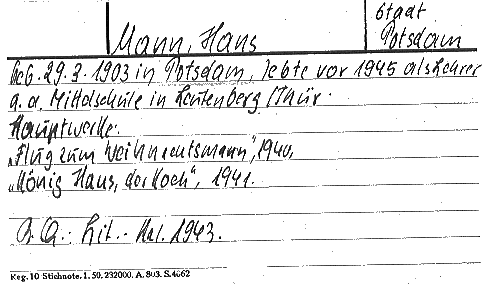 Stadt
Mann, Hans Potsdam
Geb. 29.3.1903 in Potsdam, lebte vor 1945 als Lehrer
a. a. Mittelschule in Leutenberg/Thür.
Hauptwerke:
„Flug zum Weihnachtsmann", 1940,
„König Hans, der Koch", 1941.
B. Q.: Lit.-Kal. 1943.
Reg. 10 Stichnote. 1. 50. 232000. A. 803. S. 4662